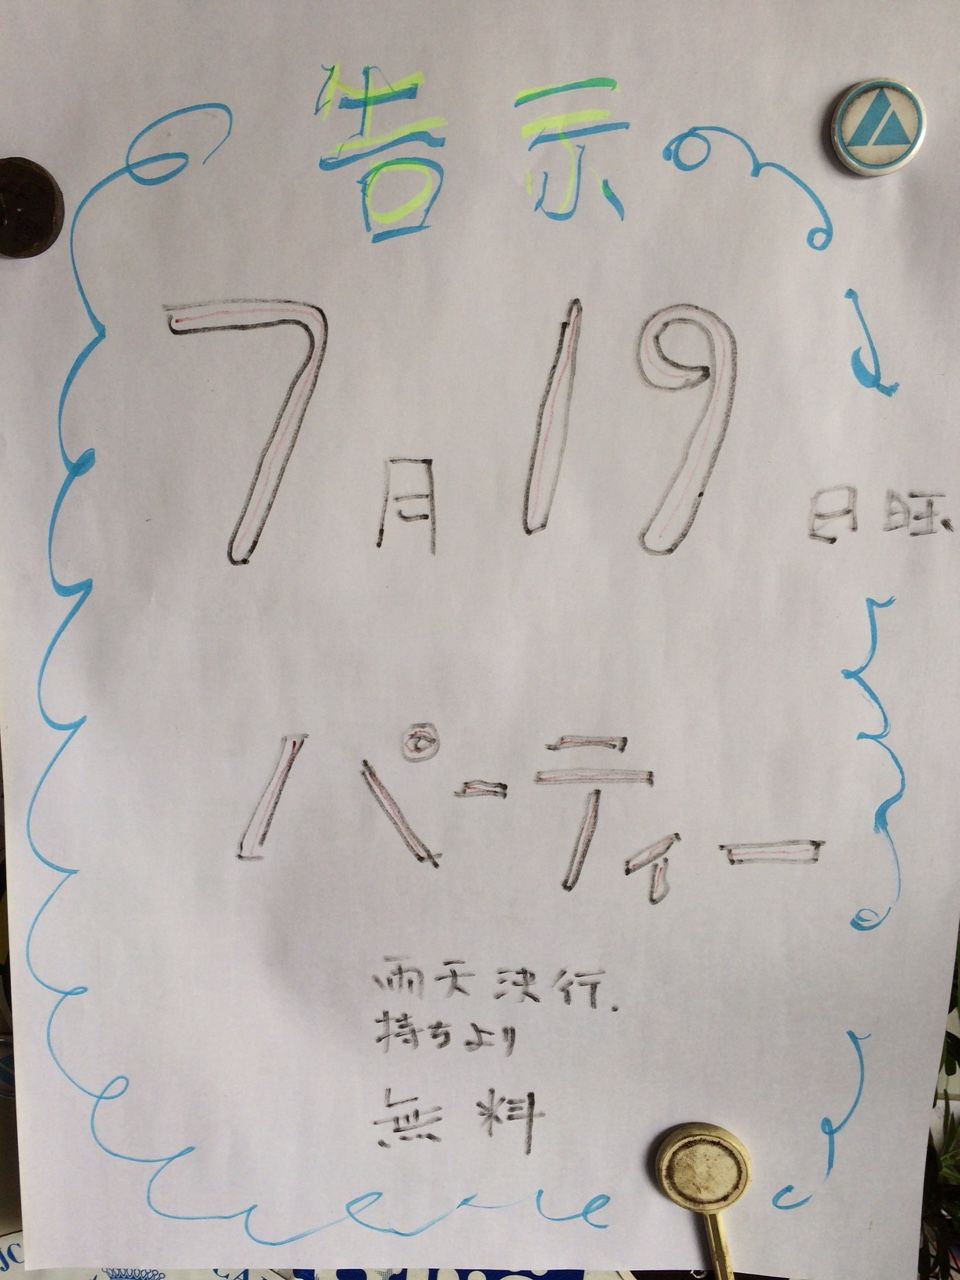 告示
7月19日
パーティー
雨天決行.
持ちより
無料